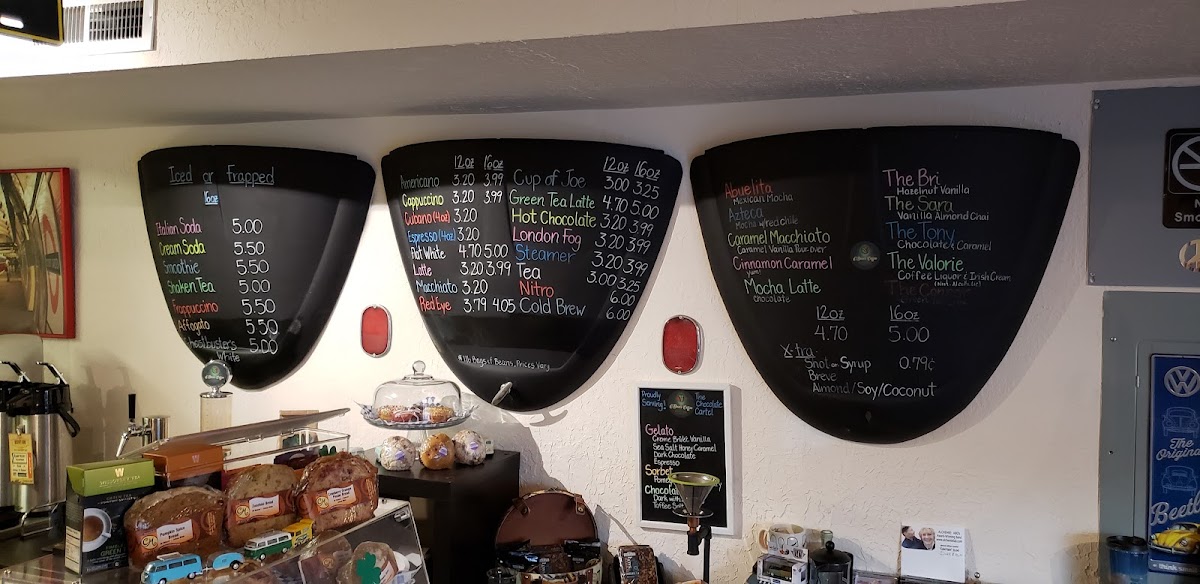 Iced or Frapped
16oz
Italian Soda 5.00
Cream Soda 5.50
Smoothie 5.50
Shaken Tea 5.00
Frappuccino 5.50
Affogato 5.50
Ghostbuster's 5.00
White
12oz 16oz
Americano 3.20 3.99
Cappuccino 3.20 3.99
Cubano (4oz) 3.20
Espresso (4oz) 3.20
Flat White 4.70 5.00
Latte 3.20 3.99
Macchiato 3.20
Red Eye 3.79 4.05
12oz 16oz
Cup of Joe 3.00 3.25
Green Tea Latte 4.70 5.00
Hot Chocolate 3.20 3.99
London Fog 3.20 3.99
Steamer 3.20 3.99
Tea 3.00 3.25
Nitro 6.00
Cold Brew 6.00
# 1lb Bags of Beans, Prices Vary
Abuelita
Mexican Mocha
Azteca
Mocha w/ red chile
Caramel Macchiato
Caramel Vanilla Pour over
Cinnamon Caramel
Yum!
Mocha Latte
Chocolate
The Bri
Hazelnut Vanilla
The Sara
Vanilla Almond Chai
The Tony
Chocolate & Caramel
The Valorie
Coffee Liquor & Irish Cream
12oz 16oz
4.70 5.00
X-tra
Shot or Syrup 0.79¢
Breve
Almond/Soy/Coconut
Proudly Serving!
The Chocolate Cartel
Gelato
Creme Brûlée Vanilla
Sea Salt Honey Caramel
Dark Chocolate
Espresso
Sorbet
Chocola
Dark wit
Toffee
The
Origina
Beetl